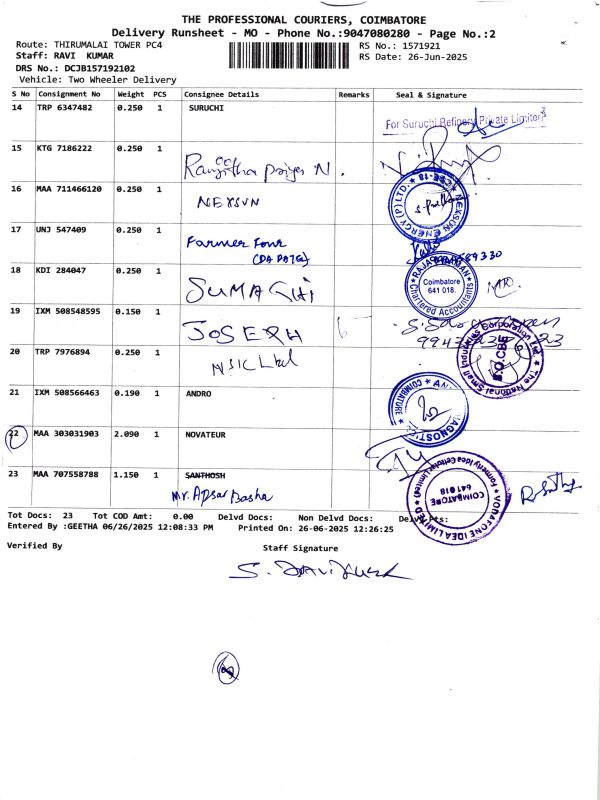 THE PROFESSIONAL COURIERS, COIMBATORE
Delivery Runsheet - MO - Phone No.:9047080280 - Page No.:2
Route: THIRUMALAI TOWER PC4
RS No.: 1571921
Staff: RAVI KUMAR
RS Date: 26-Jun-2025
DRS No.: DCJB157192102
Vehicle: Two Wheeler Delivery
S No Consignment No Weight PCS Consignee Details Remarks Seal & Signature
14 TRP 6347482 0.250 1 SURUCHI
For Suruchi Refinery Private Limited
15 KTG 7186222 0.250 1
Ranjitha priya N.
16 MAA 711466120 0.250 1
NEXSUN
NEKSON ENERGY (P) LTD. CBE-18
17 UNJ 547409 0.250 1
Farmer Four
18 KDI 284047 0.250 1
SUMAGHI
Coimbatore 641 018.
Chartered Accountants
19 IXM 508548595 0.150 1
JOSEPH
20 TRP 7976894 0.250 1
NSIC Ltd
The National Small Industries Corporation Ltd. B.O.CBE
21 IXM 508566463 0.190 1 ANDRO
COIMBATORE
22 MAA 303031903 2.090 1 NOVATEUR
23 MAA 707558788 1.150 1 SANTHOSH
Mr. Apsar Basha
VODAFONE IDEA LIMITED (Formerly Idea Cellular Limited) COIMBATORE 641018
Tot Docs: 23 Tot COD Amt: 0.00 Delvd Docs: Non Delvd Docs: Delvd Pts:
Entered By :GEETHA 06/26/2025 12:08:33 PM Printed On: 26-06-2025 12:26:25
Verified By
Staff Signature